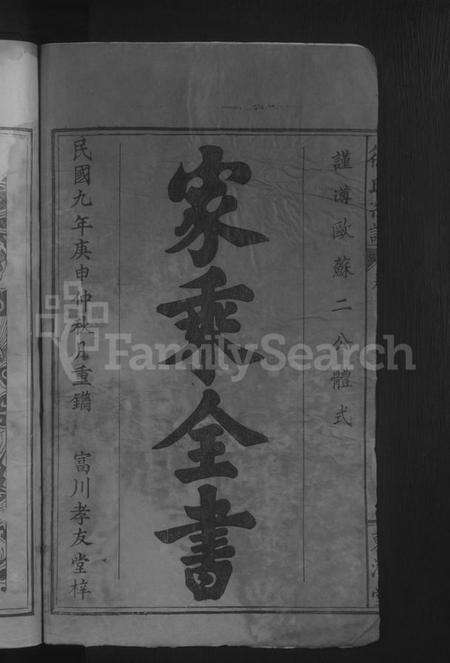 謹溥歐蘇二公體式
家乘全書
民國九年庚申仲秋月重鐫 富川孝友堂梓
FamilySearch